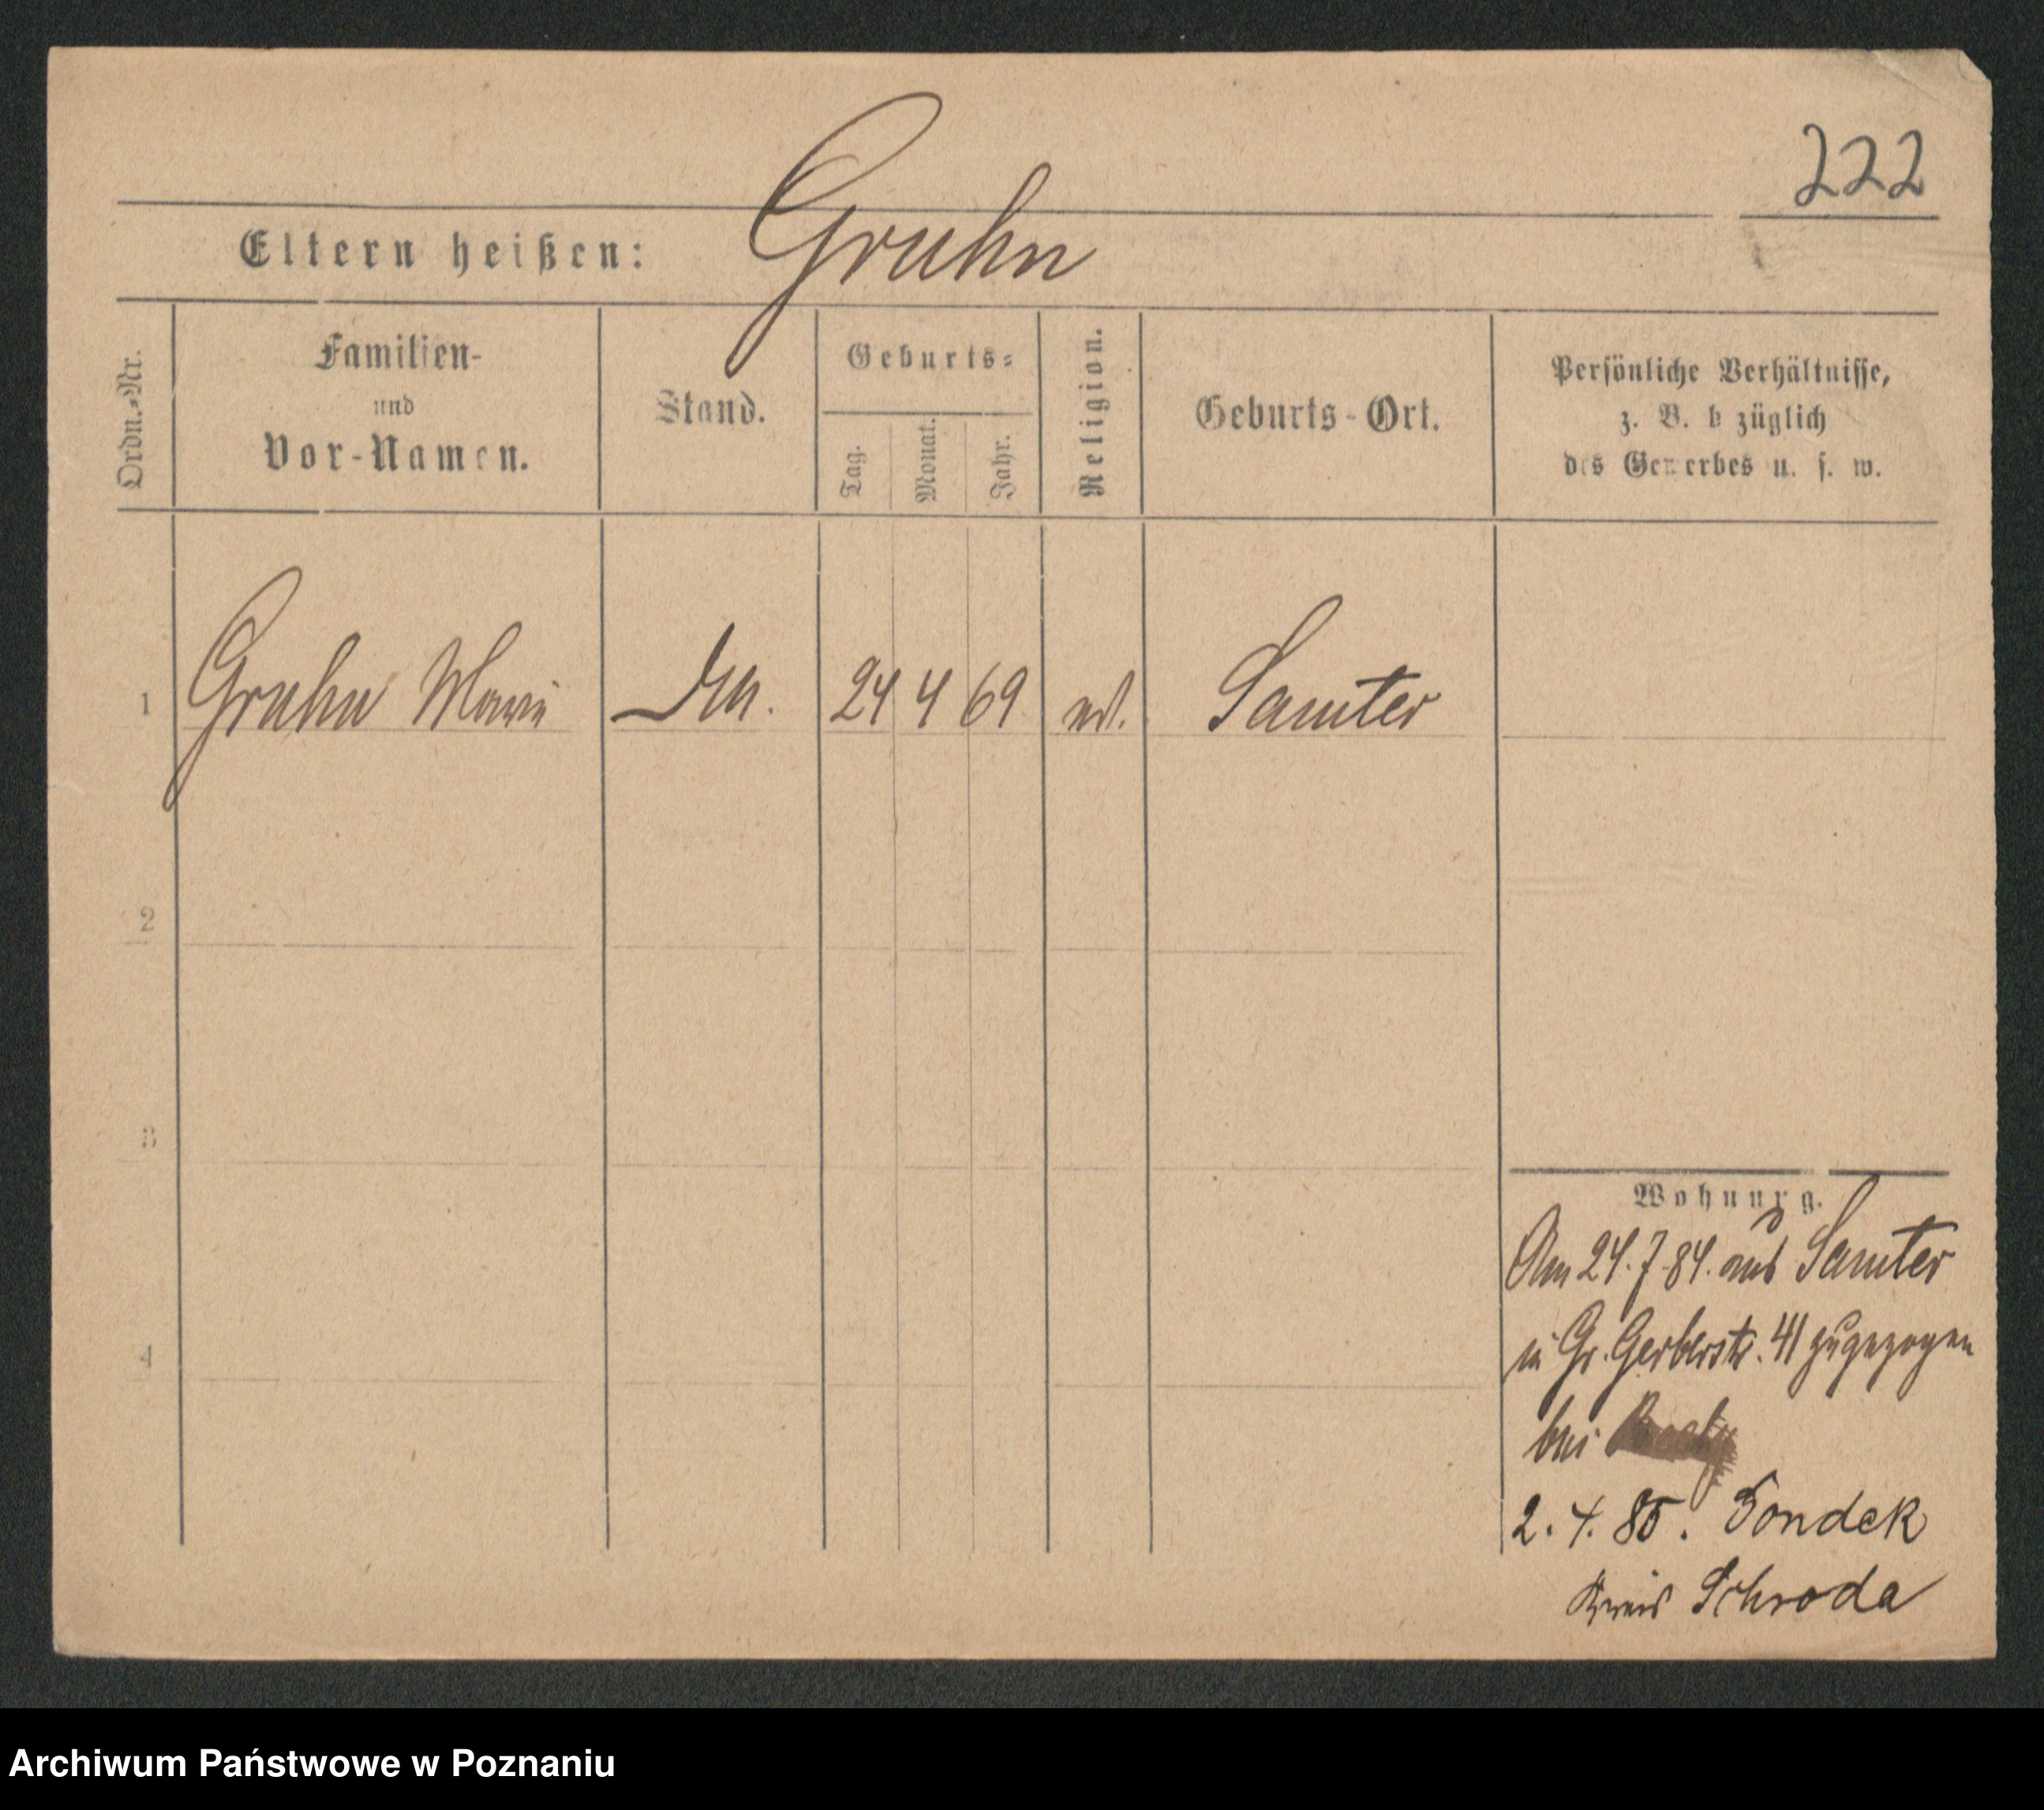 222
Eltern heißen: Gruhn
Ordn.-Nr.
Familien-
und
Vor-Namen.
Stand.
Geburts-
Tag.
Monat.
Jahr.
Religion.
Geburts-Ort.
Persönliche Verhältnisse,
z. B. b züglich
des Gewerbes u. s. w.
1 Gruhn Marie 24 4 69 Samter
2
3
4
Wohnung.
Am 24.7.84. aus Samter
in Gr. Gerberstr. 41 zugezogen
bei
2. 4. 85. Gondek
Kreis Schroda
Archiwum Państwowe w Poznaniu